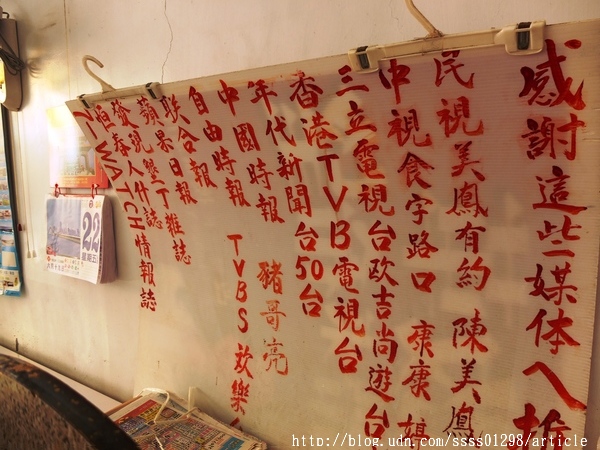 感謝這些媒体人推
民視美鳳有約 陳美鳳
中視食字路口 康康
三立電視台欧吉尚遊台
香港TVB電視台
年代新聞台50台
中國時報 豬哥亮
自由時報 TVBS 欢樂
联合報
蘋果日報
發現人什誌
WATCH情報誌
22
星期五
http://blog.udn.com/ssss01298/article